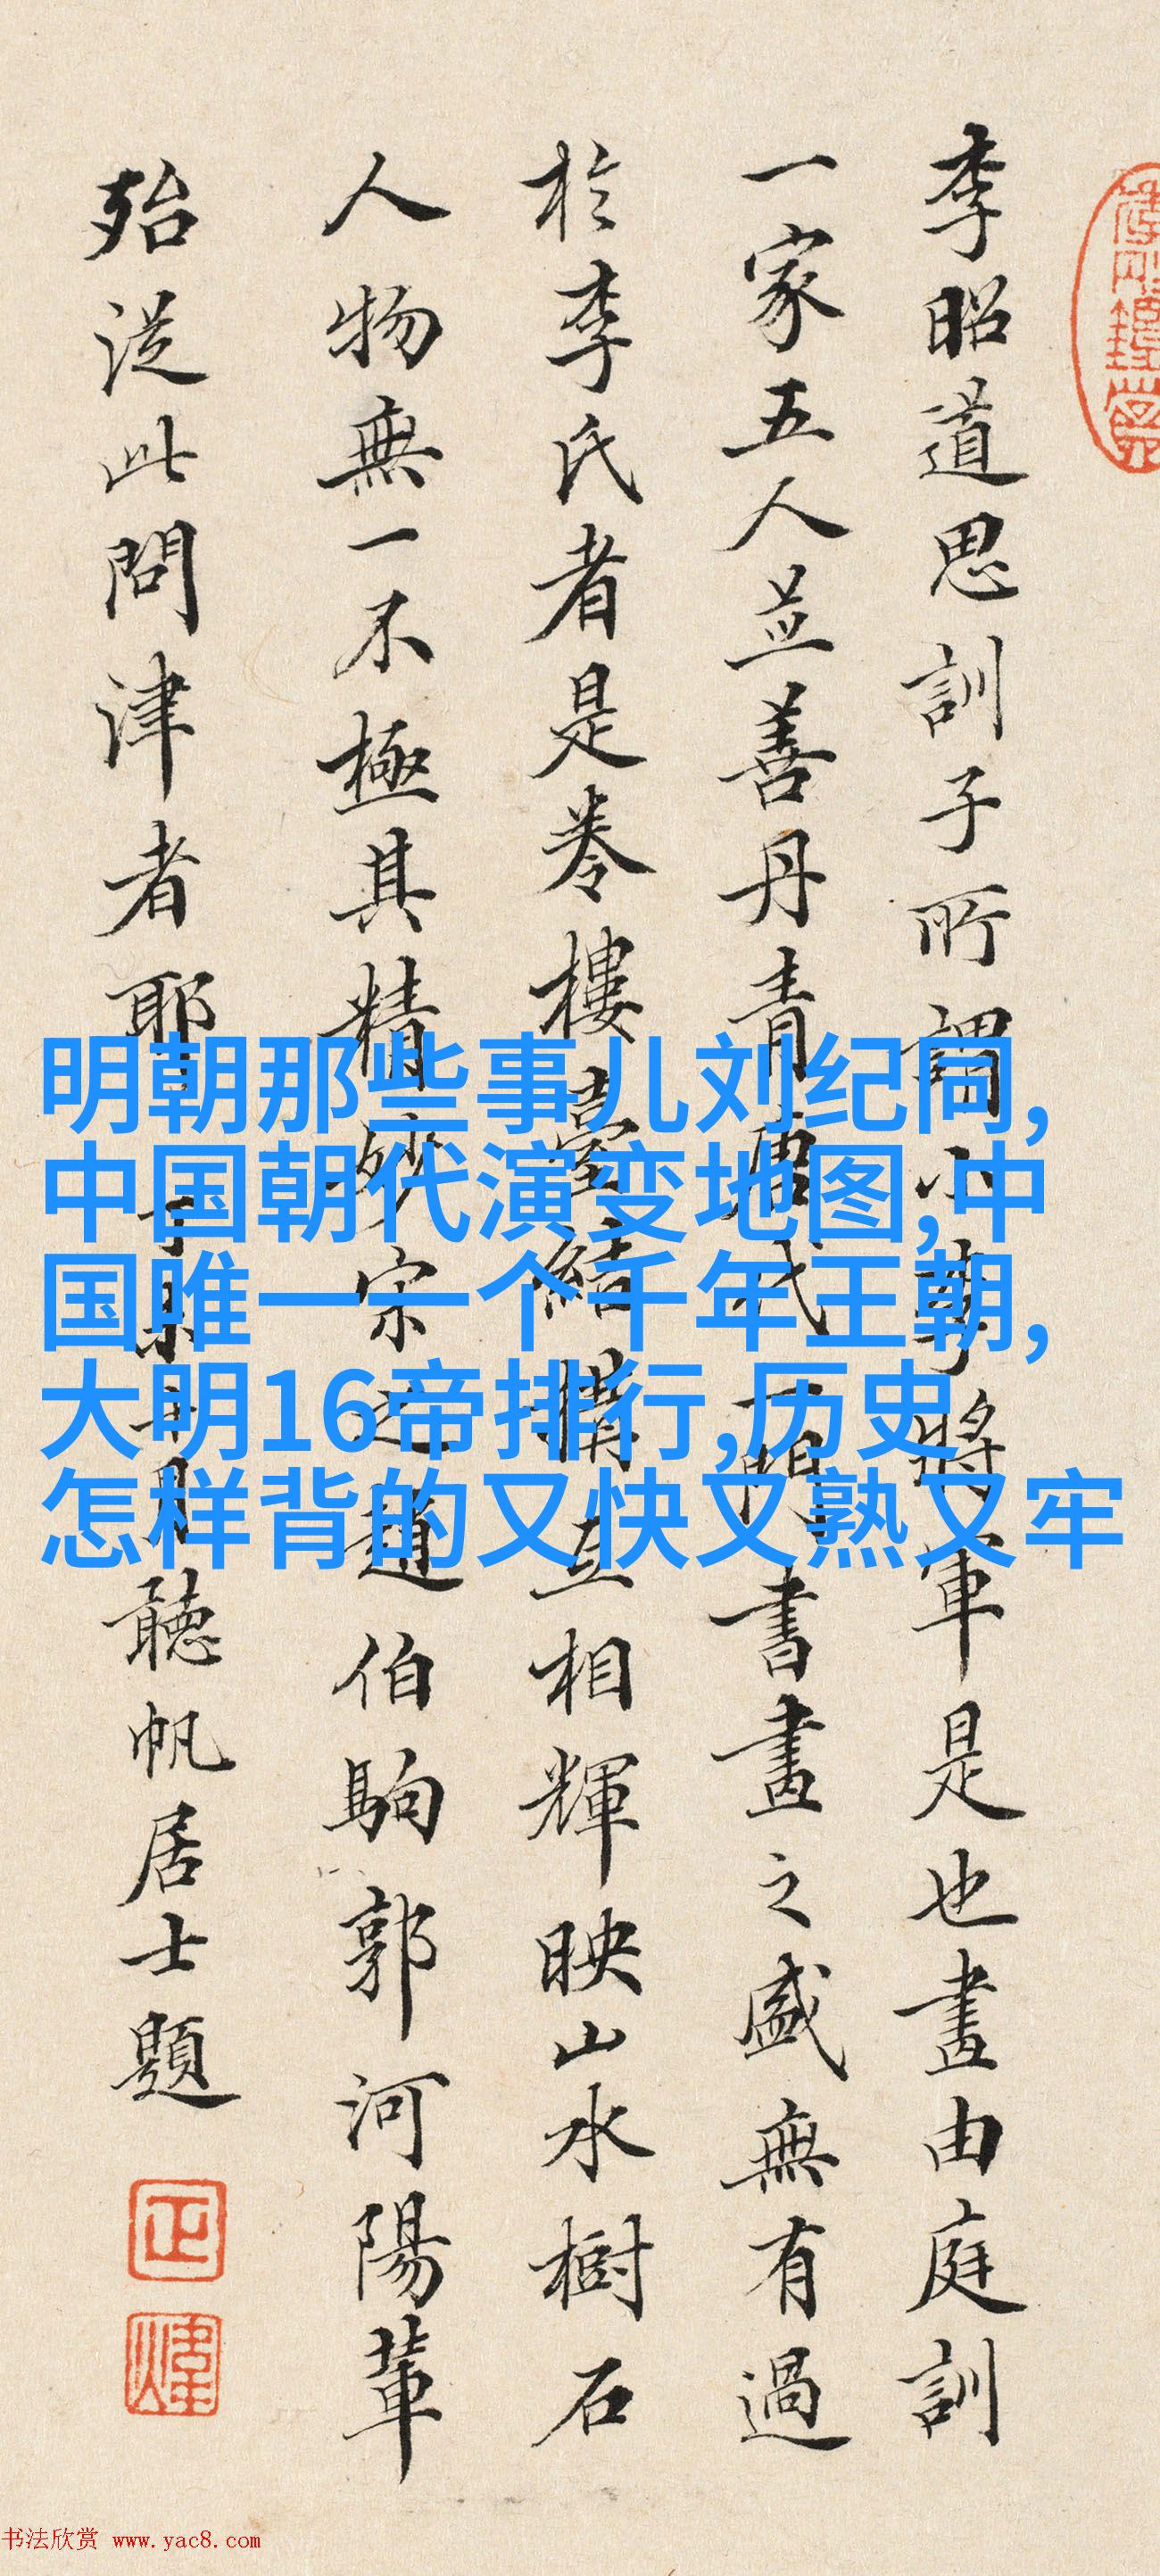 李昭道思訓子所謂小李將軍是也畫由庭訓
一家五人並善丹青唐代一門書畫之盛無有過
於李氏者是卷樓臺結構互相輝映山水樹石
人物無一不極其精妙宋之趙伯駒郭河陽輩
殆從此問津者耶 月聽帆居士題
正
煒
明朝那些事儿刘纪同,
中国朝代演变地图,中
国唯一一个千年王朝,
大明16帝排行,历史
怎样背的又快又熟又牢
书法欣赏 www.yac8.com